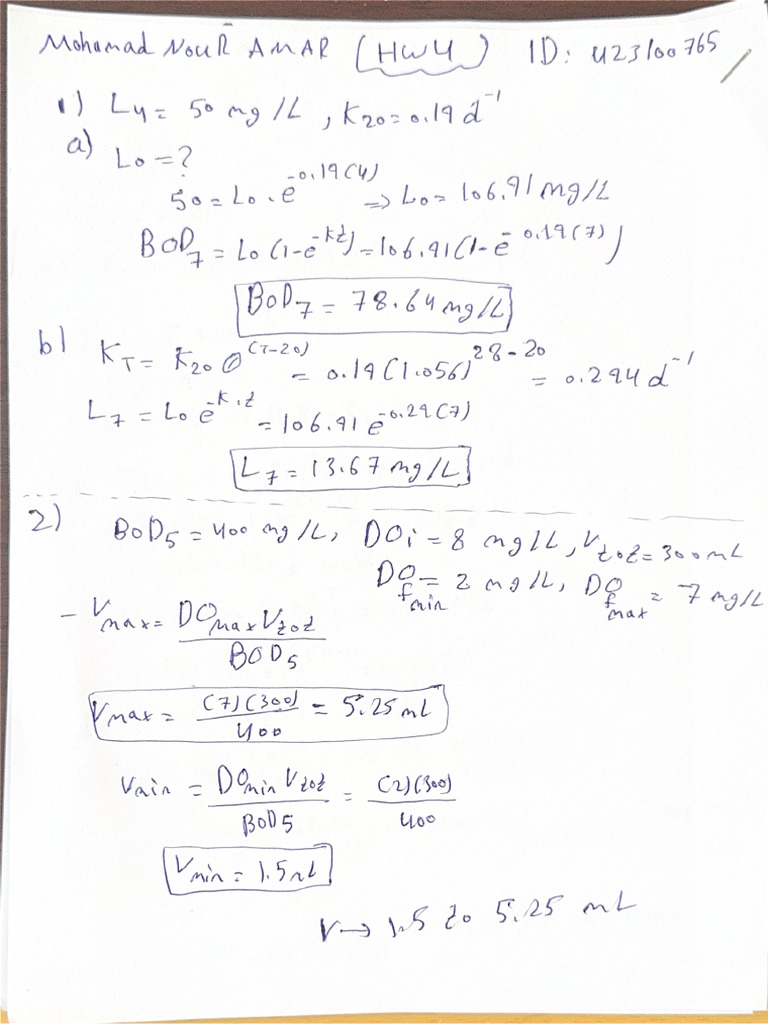 Mohamad NouR AMAR (HW4) ID: U23100765
1) L4 = 50 mg/L , K20 = 0.19 d^-1
a) Lo = ?
50 = Lo . e^-0.19(4) => Lo = 106.91 mg/L
BOD7 = Lo (1-e^-kt) = 106.91(1-e^-0.19(7))
BOD7 = 78.64 mg/L
b) KT = K20 θ^(T-20) = 0.19(1.056)^28-20 = 0.294 d^-1
L7 = Lo e^-k.t = 106.91 e^-0.29(7)
L7 = 13.67 mg/L
2) BOD5 = 400 mg/L, DOi = 8 mg/L, Vtot = 300 mL
DOfmin = 2 mg/L, DOfmax = 7 mg/L
- Vmax = DOmax Vtot / BOD5
Vmax = (7)(300) / 400 = 5.25 mL
Vmin = DOmin Vtot / BOD5 = (2)(300) / 400
Vmin = 1.5 mL
V → 1.5 to 5.25 mL